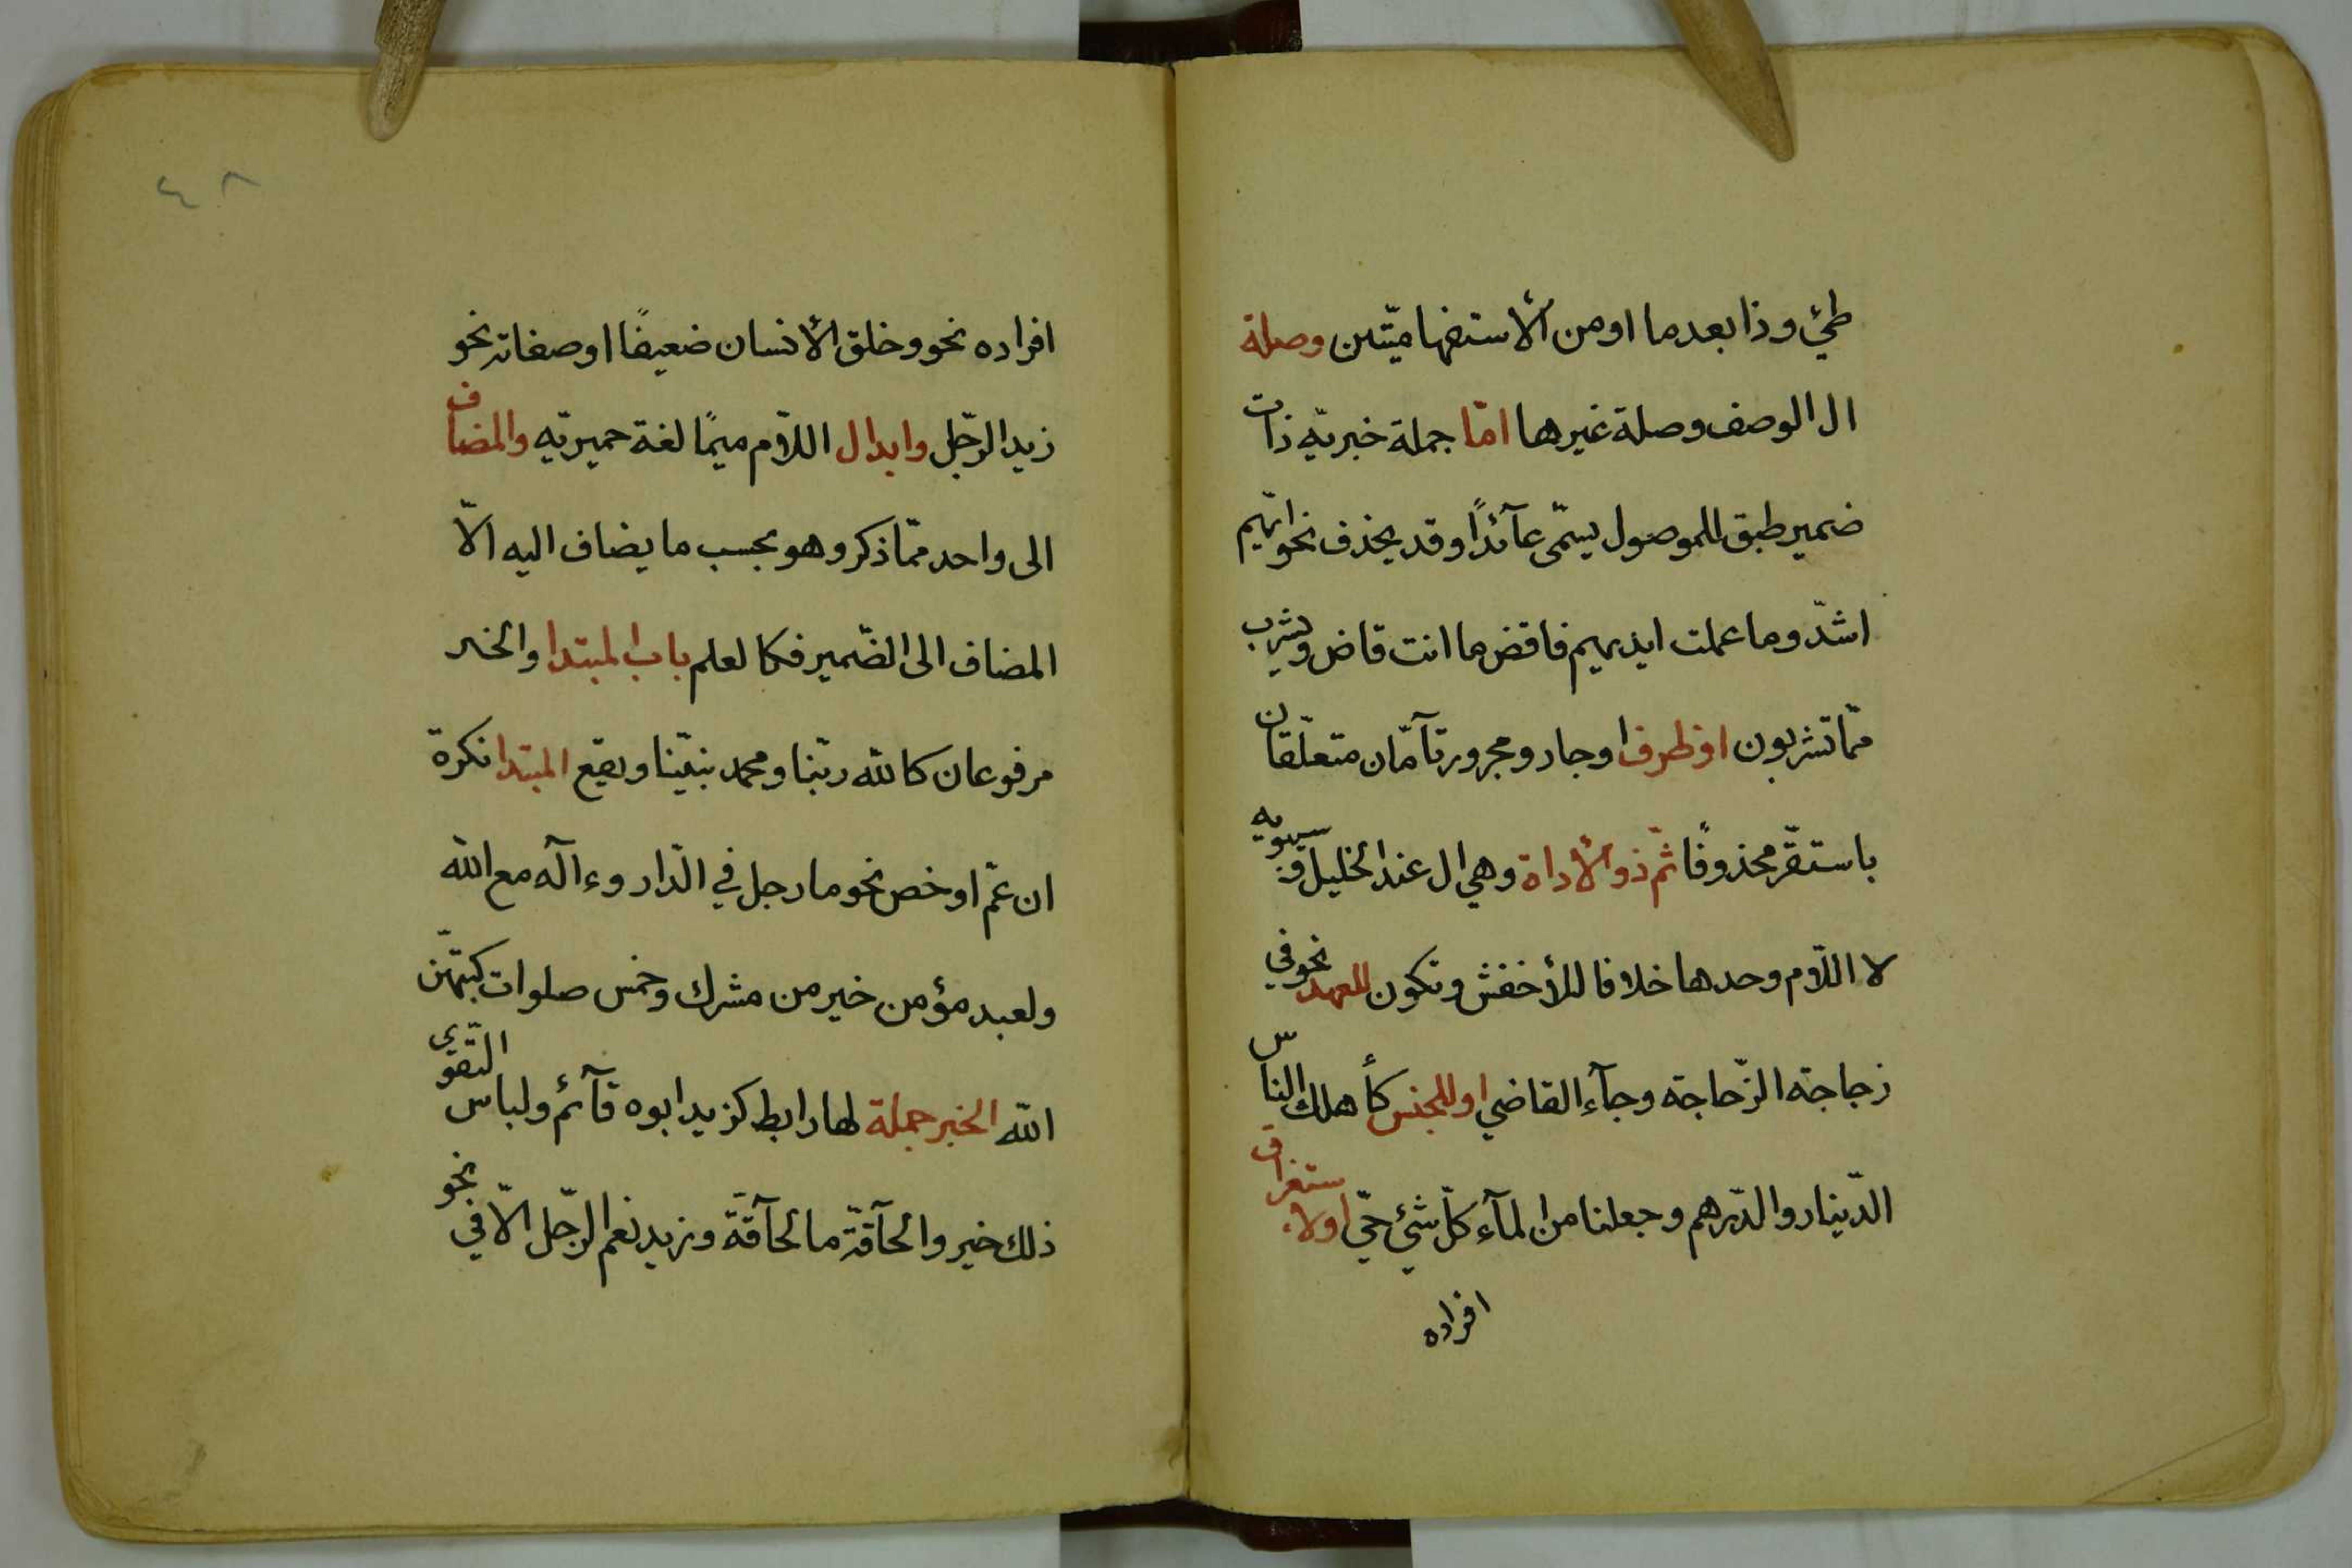 طيّئ وذا بعد ما او من الأستفهاميّتين وصلة
ال الوصف وصلة غيرها امّا جملة خبريّه ذات
ضمير طبق للموصول يسمّى عآئدًا وقد يحذف نحو ايّهم
اشدّ وما عملت ايديهم فاقض ما انت قاض ويشرب
ممّا تشربون او ظرف او جار ومجرور تآمّان متعلّقان
باستقرّ محذوفًا ثمّ ذو الأداة وهي ال عند الخليل و سيبويه
لا اللّام وحدها خلافا للأخفش وتكون للعهد نحو في
زجاجة الزّجاجة وجآء القاضي او للجنس كأهلك الناس
الدّينار والدّرهم وجعلنا من المآء كلّ شئ حيّ او لاستغراق
افراده
٤٨
افراده نحو وخلق الأنسان ضعيفًا او صفاته نحو
زيد الرّجل وابدال اللّام ميمًا لغة حميريّه والمضاف
الى واحد ممّا ذكر وهو بحسب ما يضاف اليه الّا
المضاف الى الضّمير فكالعلم باب المبتدا والخبر
مرفوعان كالله ربّنا ومحمد نبيّنا ويقع المبتدا نكرة
ان عمّ او خص نحو ما رجل في الدّار وءاله مع الله
ولعبد مؤمن خير من مشرك وخمس صلوات كتبهّن
الله الخبر جملة لها رابط كزيد ابوه قآئم ولباس التّقوى
ذلك خير والحآقّة ما الحآقّة وزيد نعم الرّجل الّا في نحو